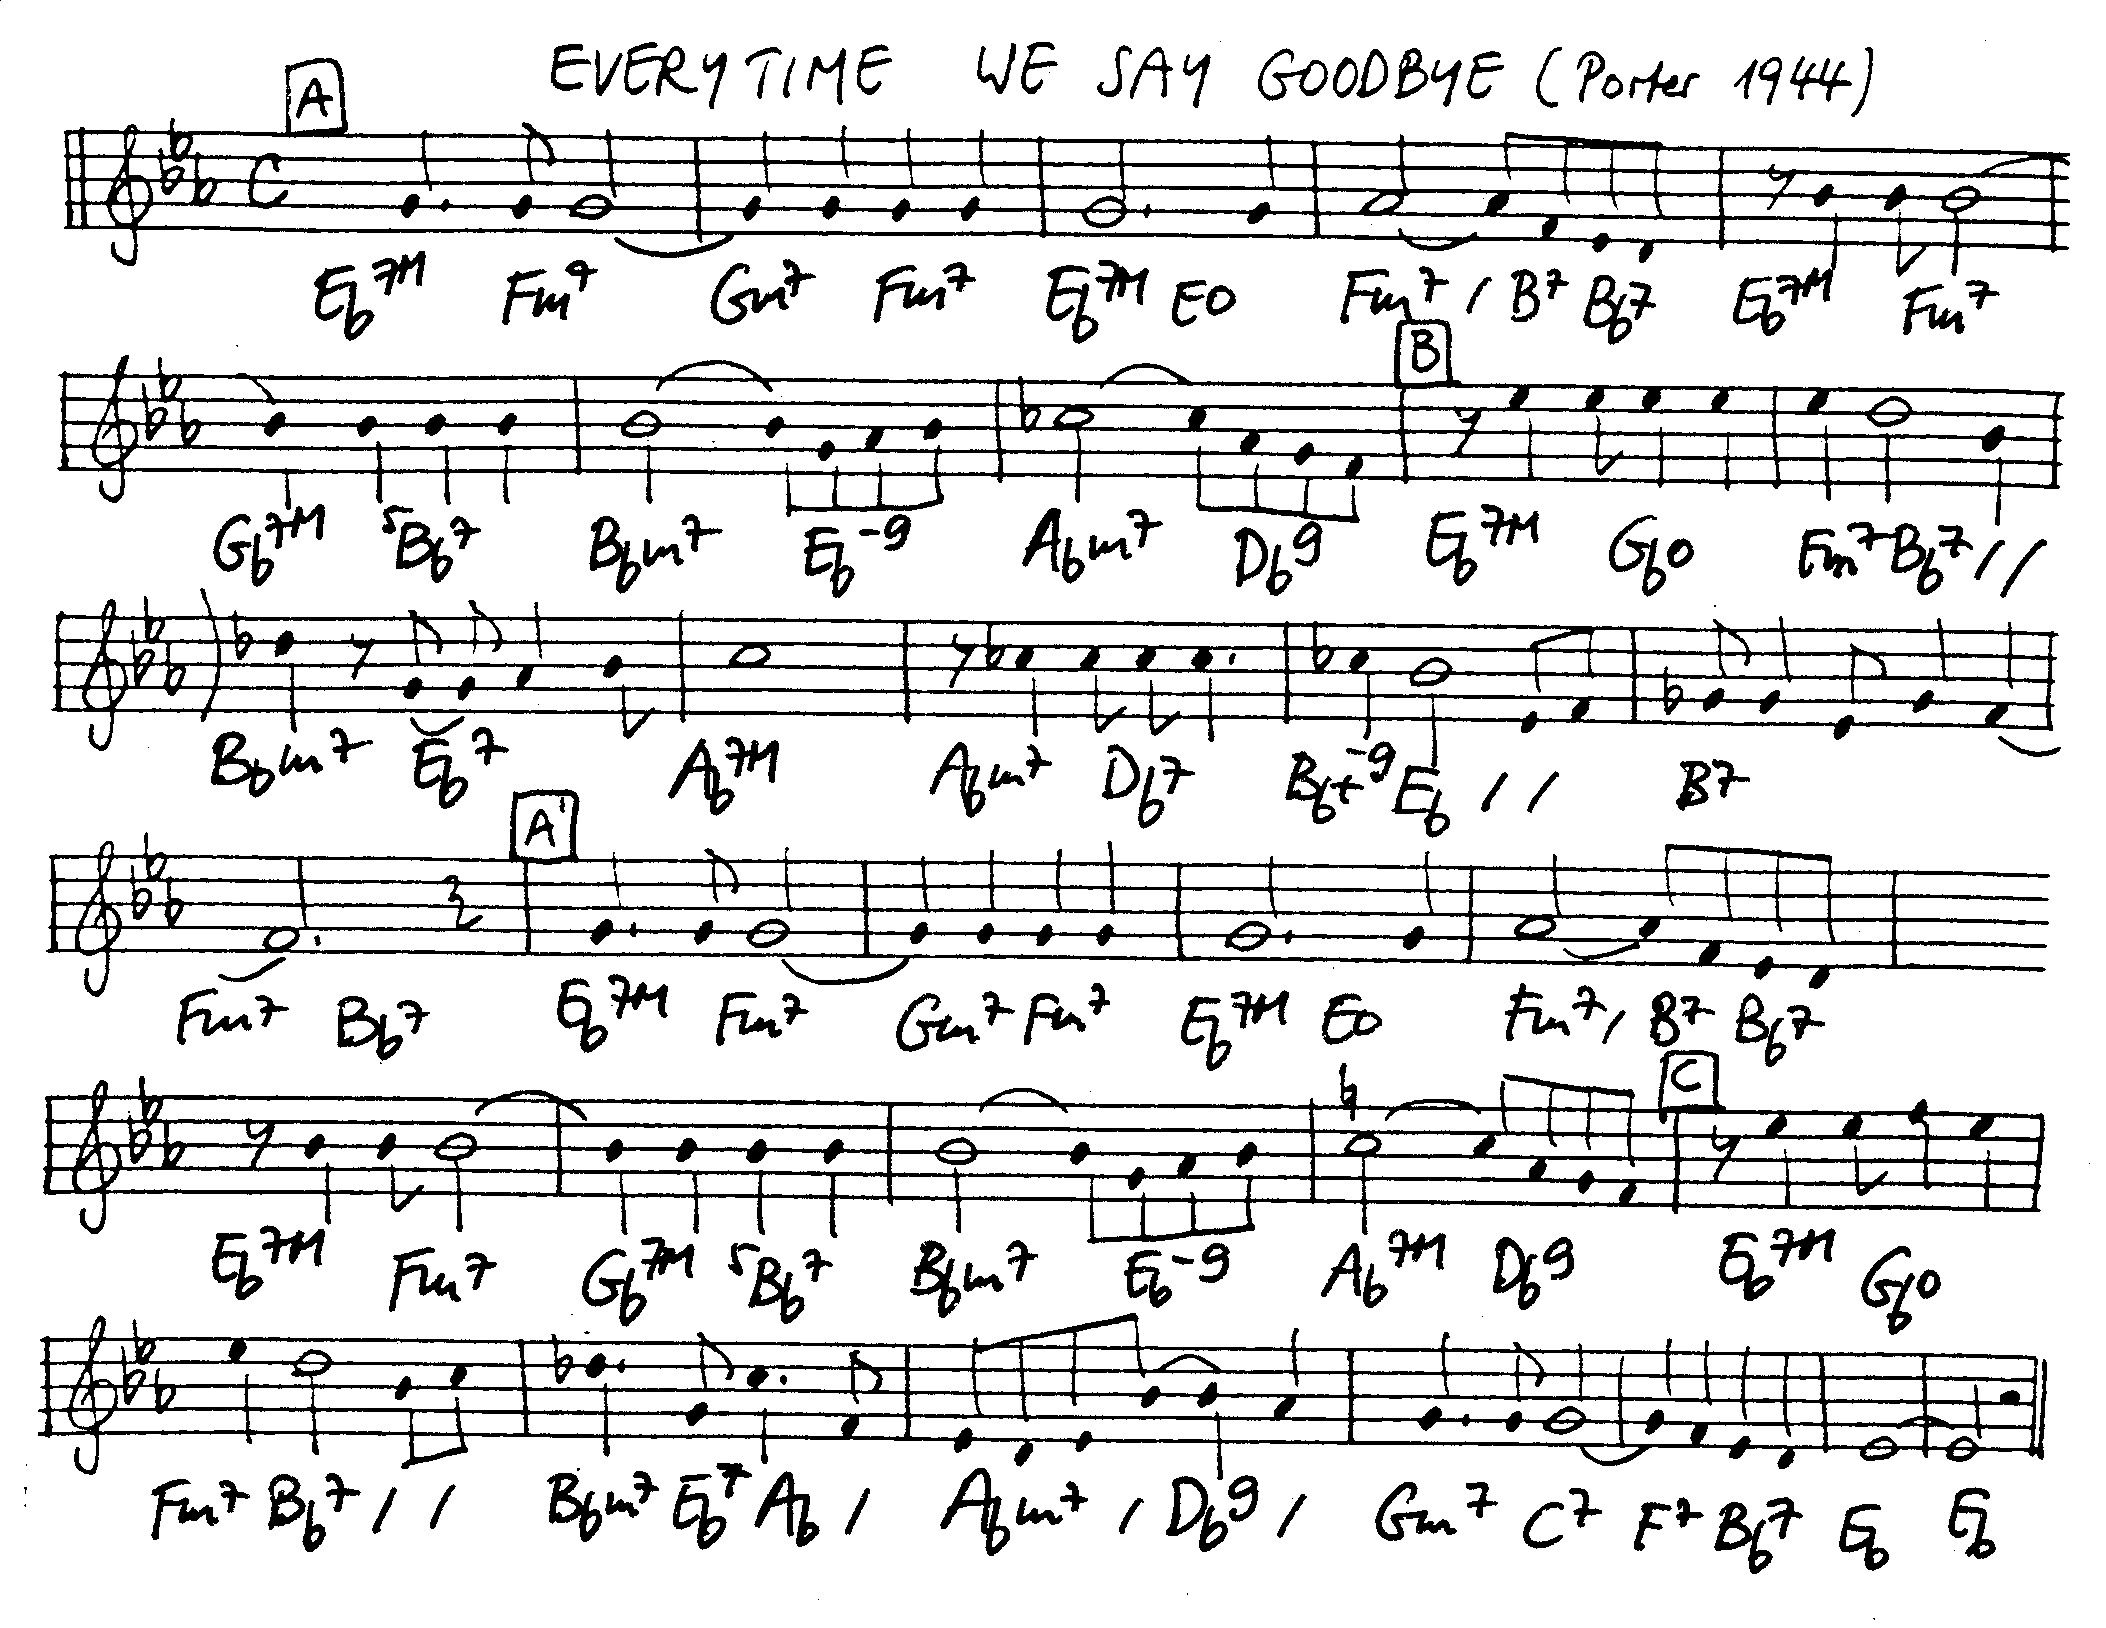 EVERYTIME WE SAY GOODBYE (Porter 1944)
A
Eb7M Fm9 Gm7 Fm7 Eb7M Eo Fm7 / B7 Bb7 Eb7M Fm7
B
Gb7M 5Bb7 Bbm7 Eb-9 Abm7 Db9 Eb7M Gbo Fm7 Bb7 / /
Bbm7 Eb7 Ab7M Abm7 Db7 Bb+-9 Eb / / B7
A'
Fm7 Bb7 Eb7M Fm7 Gm7 Fm7 Eb7M Eo Fm7 / B7 Bb7
C
Eb7M Fm7 Gb7M 5Bb7 Bbm7 Eb-9 Ab7M Db9 Eb7M Gbo
Fm7 Bb7 / / Bbm7 Eb7 Ab / Abm7 / Db9 / Gm7 C7 F7 Bb7 Eb Eb